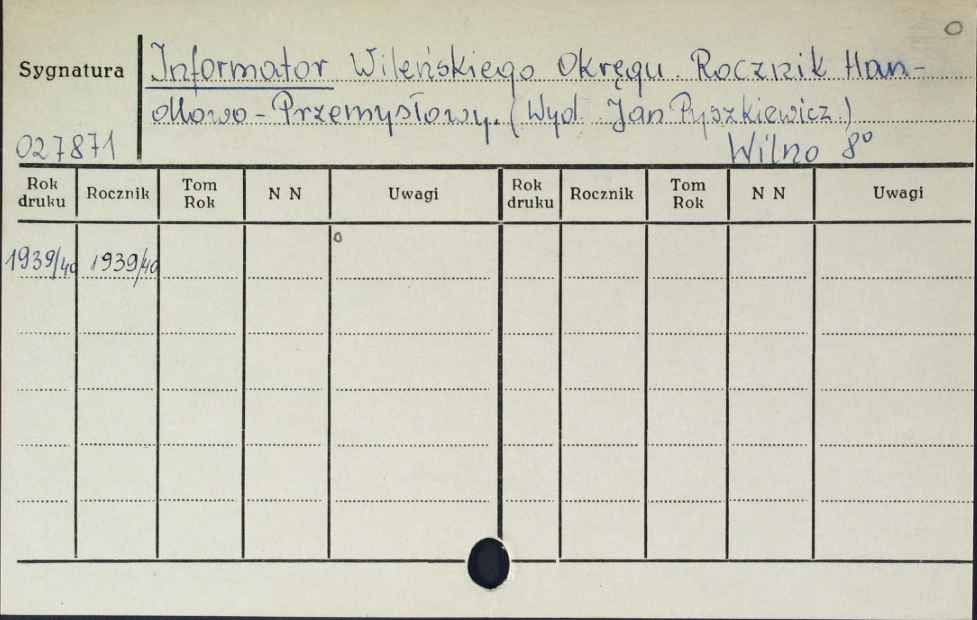 O
Sygnatura Informator Wileńskiego Okręgu. Rocznik Han-
dlowo-Przemysłowy. (Wyd. Jan Pyszkiewicz)
027871 Wilno 8°
Rok druku Rocznik Tom Rok N N Uwagi Rok druku Rocznik Tom Rok N N Uwagi
1939/40 1939/40 o